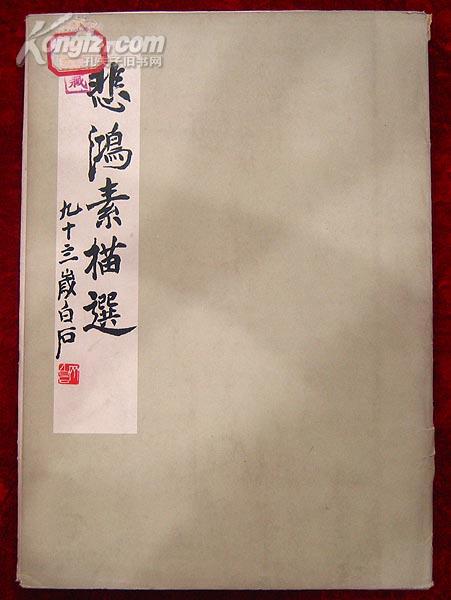 Kongfz.com
孔夫子旧书网
藏
悲鴻素描選
九十三歲白石